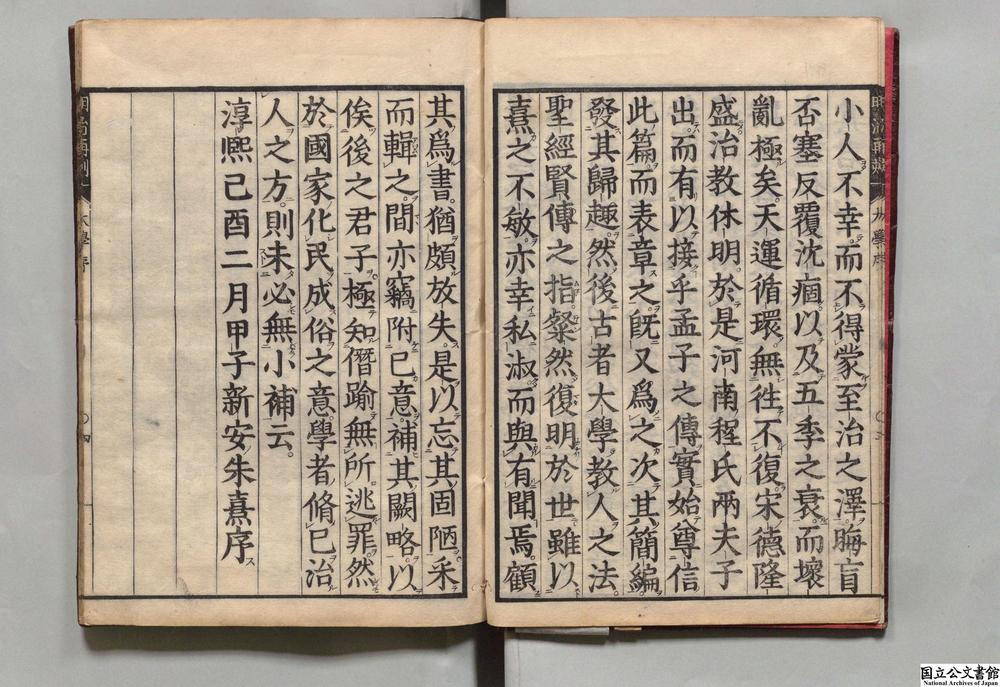 小人不幸而不得蒙至治之澤晦盲
否塞反覆沈痼以及五季之衰而壞
亂極矣天運循環無徃不復宋德隆
盛治教休明於是河南程氏兩夫子
出而有以接乎孟子之傳實始尊信
此篇而表章之旣又爲之次其簡編
發其歸趣然後古者大學教人之法
聖經賢傳之指粲然復明於世雖以
熹之不敏亦幸私淑而與有聞焉顧
其爲書猶頗放失是以忘其固陋釆
而輯之間亦竊附己意補其闕略以
俟後之君子極知僭踰無所逃罪然
於國家化民成俗之意學者脩己治
人之方則未必無小補云。
淳熈己酉二月甲子新安朱熹序
大學序
国立公文書館
National Archives of Japan